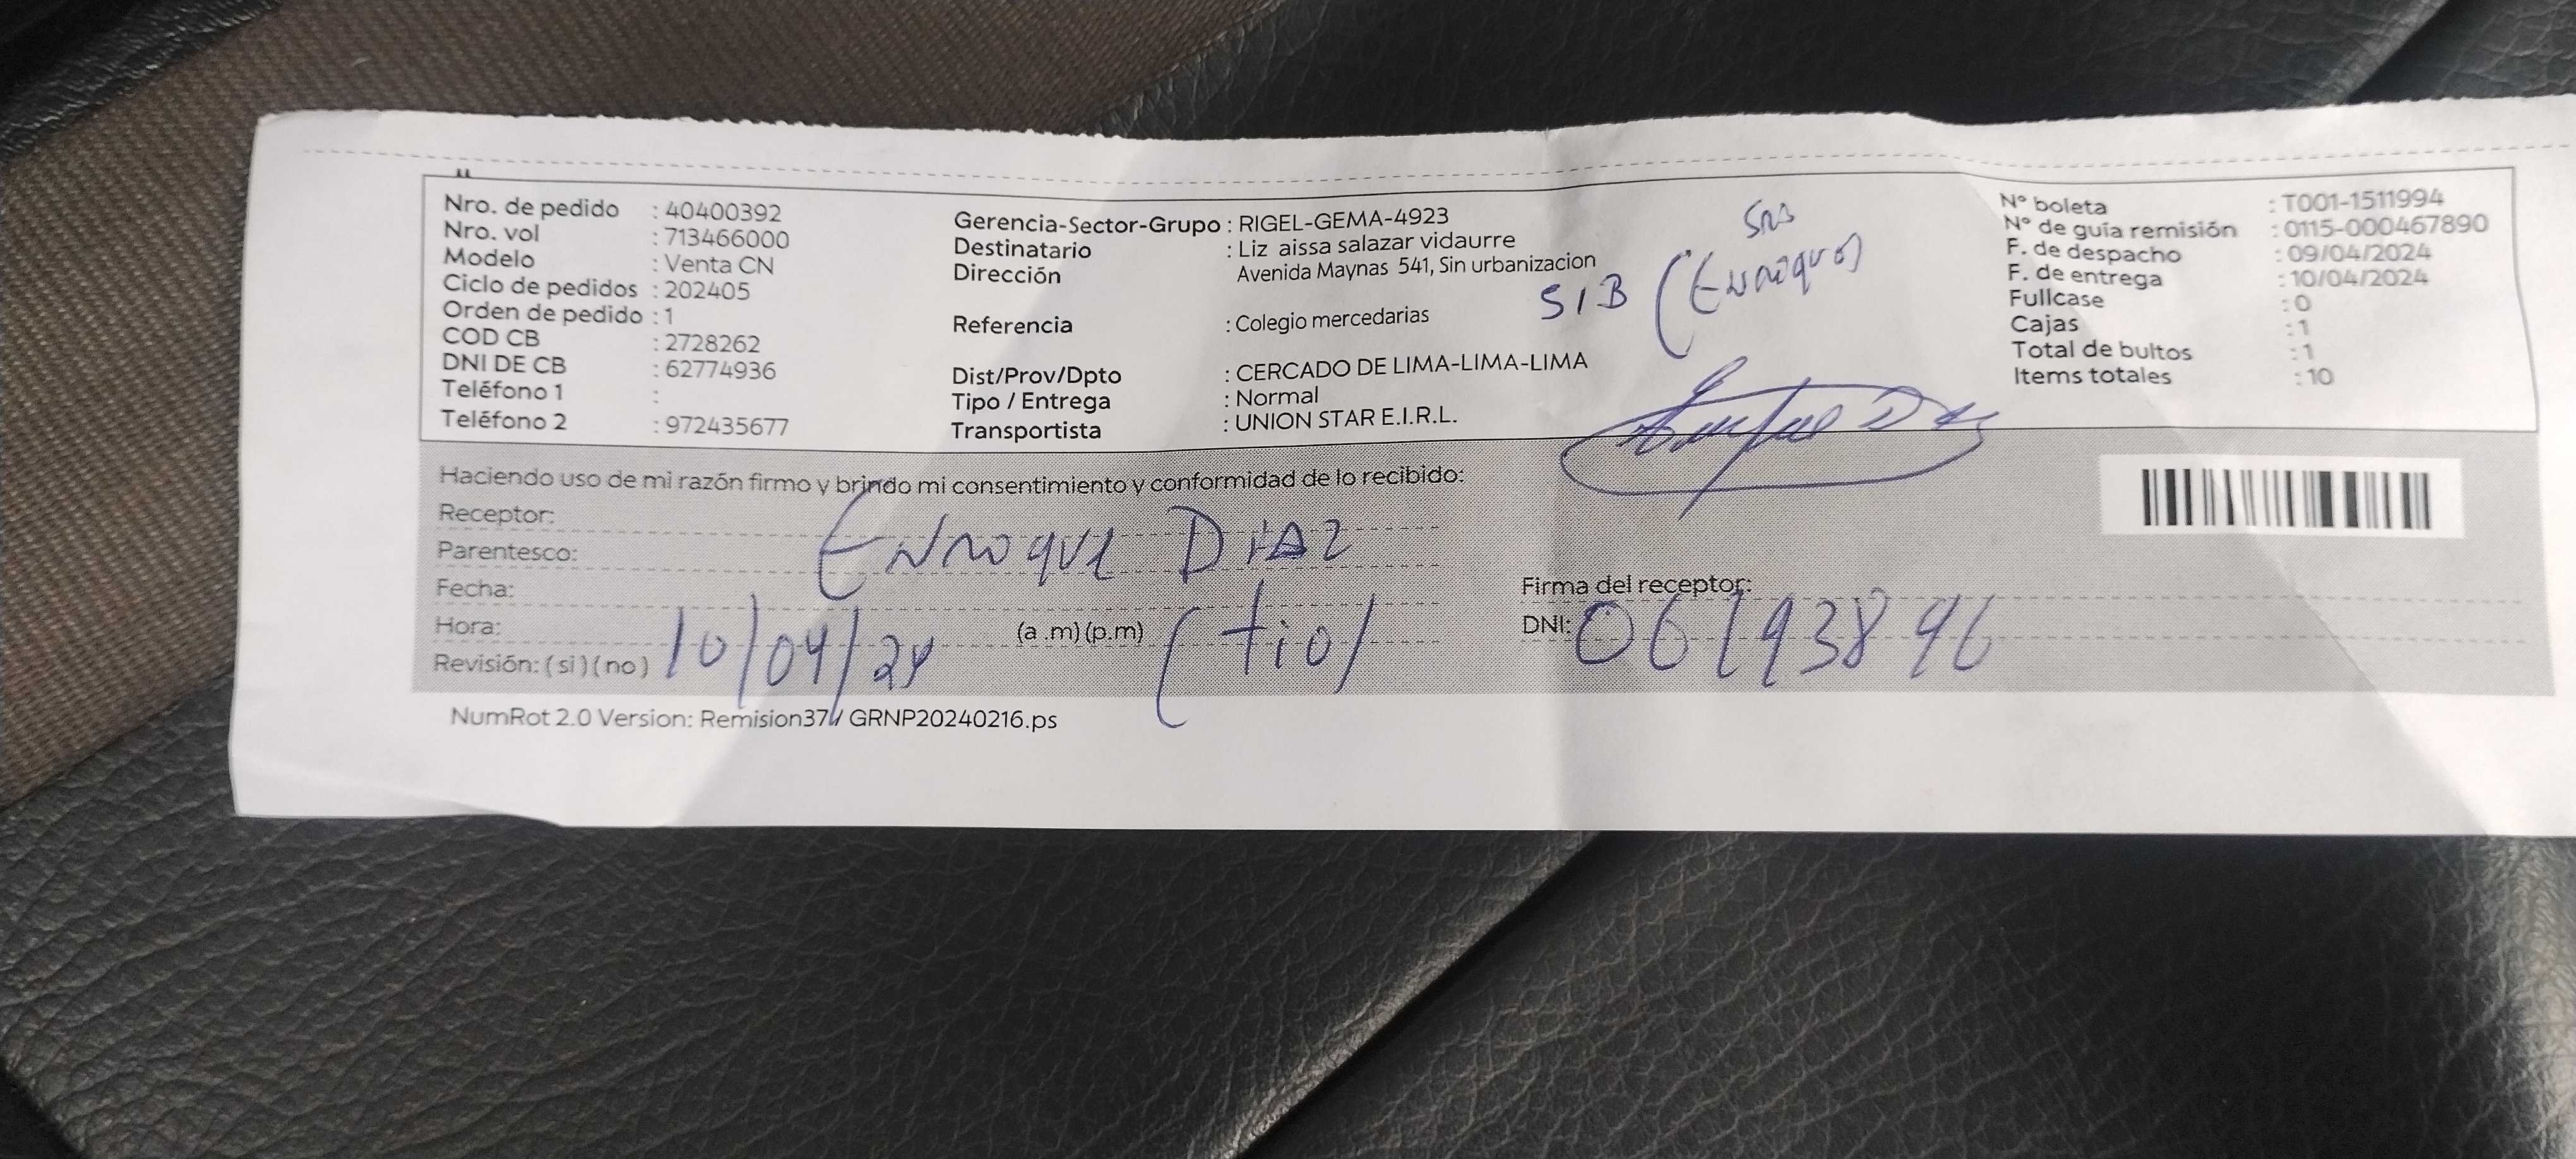 Nro. de pedido : 40400392
Nro. vol : 713466000
Modelo : Venta CN
Ciclo de pedidos : 202405
Orden de pedido : 1
COD CB : 2728262
DNI DE CB : 62774936
Teléfono 1 :
Teléfono 2 : 972435677
Gerencia-Sector-Grupo : RIGEL-GEMA-4923
Destinatario : Liz aissa salazar vidaurre
Dirección Avenida Maynas 541, Sin urbanizacion
Referencia : Colegio mercedarias
Dist/Prov/Dpto : CERCADO DE LIMA-LIMA-LIMA
Tipo / Entrega : Normal
Transportista : UNION STAR E.I.R.L.
S/B (Enrique)
N° boleta : T001-1511994
N° de guía remisión : 0115-000467890
F. de despacho : 09/04/2024
F. de entrega : 10/04/2024
Fullcase : 0
Cajas : 1
Total de bultos : 1
Items totales : 10
Haciendo uso de mi razón firmo y brindo mi consentimiento y conformidad de lo recibido:
Receptor:
Enrique Diaz
Parentesco:
Fecha:
Hora: (a .m) (p.m)
Revisión: ( si ) ( no ) 10/04/24 (tio)
Firma del receptor:
DNI: 06193896
NumRot 2.0 Version: Remision37 / GRNP20240216.ps